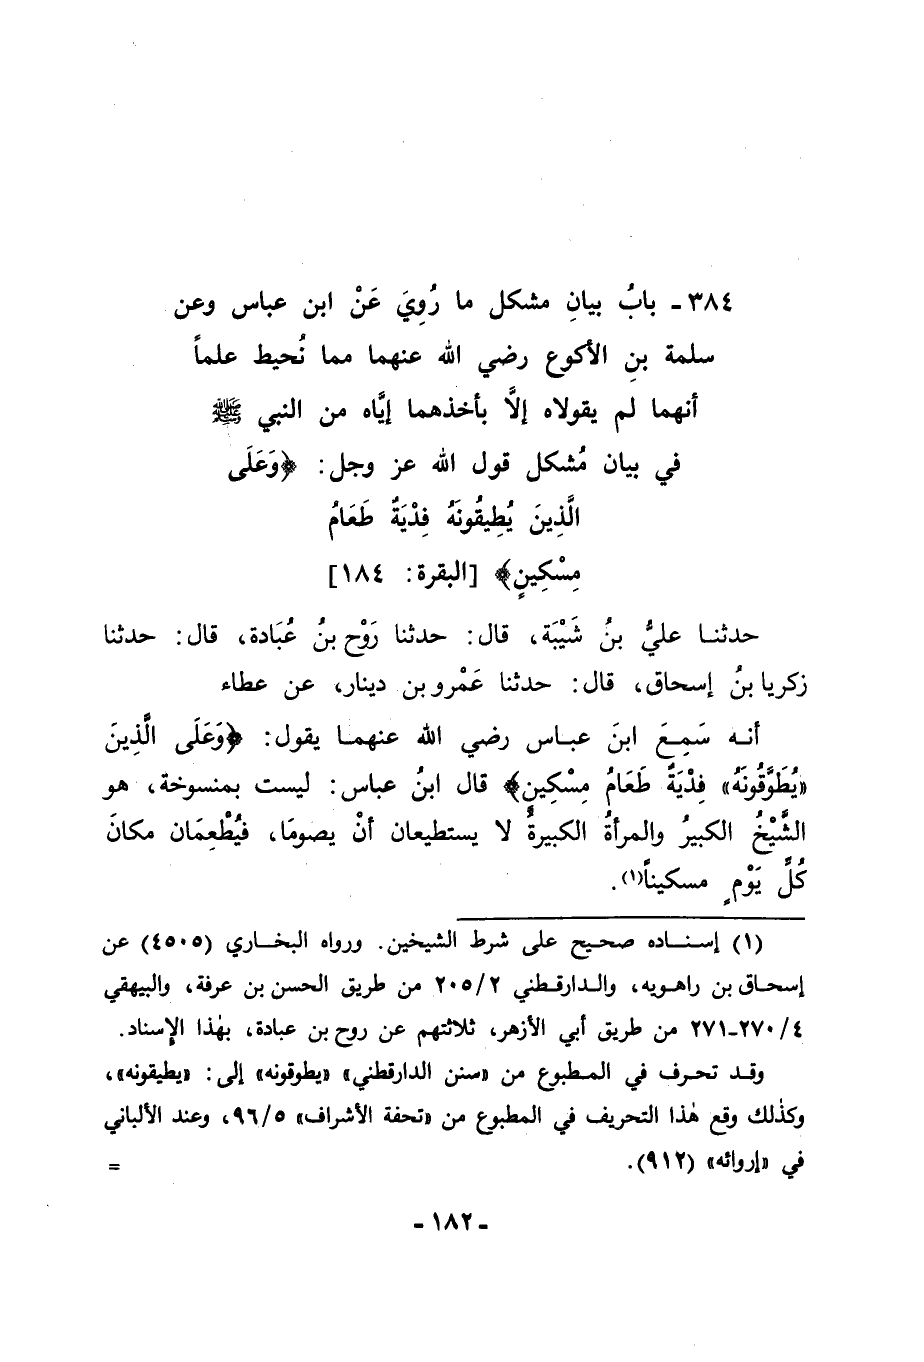 ٣٨٤ ـ بابُ بيانِ مشكل ما رُوِيَ عَنْ ابن عباس وعن
سلمة بنِ الأكوع رضي الله عنهما مما نُحيط علماً
أنهما لم يقولاه إلَّا بأخذهما إيَّاه من النبي ﷺ
في بيان مُشكل قول الله عز وجل: ﴿وَعَلَى
الَّذِينَ يُطِيقُونَهُ فِدْيَةٌ طَعَامُ
مِسْكِينٍ﴾ [البقرة: ١٨٤]
حدثنا عليُّ بنُ شَيْبَة، قال: حدثنا رَوْح بنُ عُبَادة، قال: حدثنا
زكريا بنُ إسحاق، قال: حدثنا عَمْرو بن دينار، عن عطاء
أنه سَمِعَ ابنَ عباس رضي الله عنهما يقول: ﴿وَعَلَى الَّذِينَ
«يُطَوَّقُونَهُ» فِدْيَةٌ طَعَامُ مِسْكِينٍ﴾ قال ابنُ عباس: ليست بمنسوخة، هو
الشَّيْخُ الكبيرُ والمرأةُ الكبيرةُ لا يستطيعان أنْ يصومَا، فيُطْعِمَان مكانَ
كُلِّ يَوْمٍ مسكيناً(١).
(١) إسناده صحيح على شرط الشيخين. ورواه البخاري (٤٥٠٥) عن
إسحاق بن راهويه، والدارقطني ٢٠٥/٢ من طريق الحسن بن عرفة، والبيهقي
٢٧٠/٤-٢٧١ من طريق أبي الأزهر، ثلاثتهم عن روح بن عبادة، بهٰذا الإِسناد.
وقد تحرف في المطبوع من «سنن الدارقطني» «يطوقونه» إلى: «يطيقونه»،
وكذٰلك وقع هٰذا التحريف في المطبوع من «تحفة الأشراف» ٩٦/٥، وعند الألباني
في «إروائه» (٩١٢). =
ـ ١٨٢ ـ